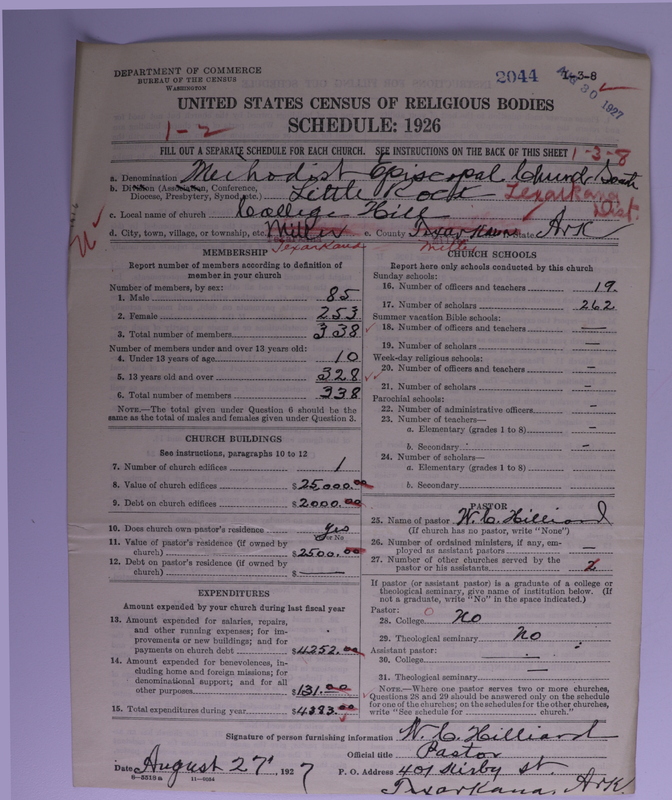 DEPARTMENT OF COMMERCE
BUREAU OF THE CENSUS
WASHINGTON
2044 1-3-8
AUG 30 1927
UNITED STATES CENSUS OF RELIGIOUS BODIES
1-2 SCHEDULE: 1926
FILL OUT A SEPARATE SCHEDULE FOR EACH CHURCH. SEE INSTRUCTIONS ON THE BACK OF THIS SHEET 1-3-8
a. Denomination Methodist Episcopal Church South
b. Division (Association, Conference, Diocese, Presbytery, Synod, etc.) Little Rock Texarkana Dist.
c. Local name of church College Hill
d. City, town, village, or township, etc. Miller Texarkana e. County Texarkana Miller State Ark
MEMBERSHIP
Report number of members according to definition of member in your church
Number of members, by sex:
1. Male 85
2. Female 253
3. Total number of members 338
Number of members under and over 13 years old:
4. Under 13 years of age 10
5. 13 years old and over 328
6. Total number of members 338
NOTE.—The total given under Question 6 should be the same as the total of males and females given under Question 3.
CHURCH BUILDINGS
See instructions, paragraphs 10 to 12
7. Number of church edifices 1
8. Value of church edifices $25,000.00
9. Debt on church edifices $2000.00
10. Does church own pastor's residence yes
Yes or No
11. Value of pastor's residence (if owned by church) $2500.00
12. Debt on pastor's residence (if owned by church) $ —
EXPENDITURES
Amount expended by your church during last fiscal year
13. Amount expended for salaries, repairs, and other running expenses; for improvements or new buildings; and for payments on church debt $4252.00
14. Amount expended for benevolences, including home and foreign missions; for denominational support; and for all other purposes $131.00
15. Total expenditures during year $4383.00
CHURCH SCHOOLS
Report here only schools conducted by this church
Sunday schools:
16. Number of officers and teachers 19
17. Number of scholars 262
Summer vacation Bible schools:
18. Number of officers and teachers —
19. Number of scholars —
Week-day religious schools:
20. Number of officers and teachers —
21. Number of scholars —
Parochial schools:
22. Number of administrative officers —
23. Number of teachers—
a. Elementary (grades 1 to 8) —
b. Secondary —
24. Number of scholars—
a. Elementary (grades 1 to 8)
b. Secondary
PASTOR
25. Name of pastor W. C. Hilliard
(If church has no pastor, write "None")
26. Number of ordained ministers, if any, employed as assistant pastors —
27. Number of other churches served by the pastor or his assistants 2
If pastor (or assistant pastor) is a graduate of a college or theological seminary, give name of institution below. (If not a graduate, write "No" in the space indicated.)
Pastor:
28. College No
29. Theological seminary No
Assistant pastor:
30. College —
31. Theological seminary —
NOTE.—Where one pastor serves two or more churches, Questions 28 and 29 should be answered only on the schedule for one of the churches; on the schedules for the other churches, write "See schedule for ............ church."
Signature of person furnishing information W. C. Hilliard
Official title Pastor
Date August 27, 1927 P. O. Address 401 Kirby St.
8-5518a 11-9034 Texarkana, Ark.